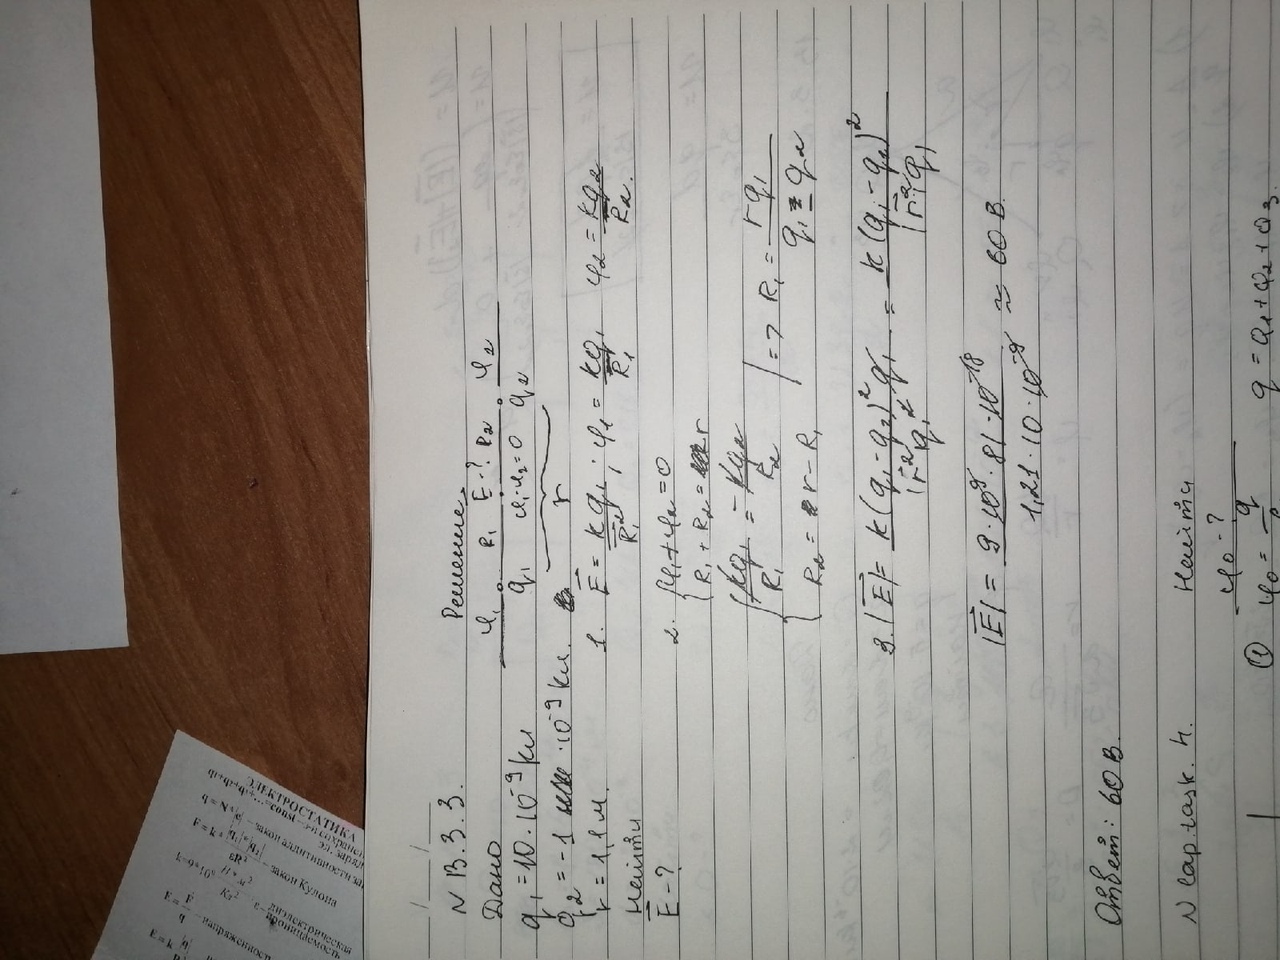 N В.3.3.
Дано
q₁ = 10 · 10⁻⁹ Кл
q₂ = -1 · 10⁻⁹ Кл.
r = 1,1 м.
Найти
E⃗ - ?
Решение
φ₁ R₁ E - ? R₂ φ₂
q₁ q₂
r
1. E⃗ = kq₁/R₁² ; φ₁ = kq₁/R₁ φ₂ = kq₂/R₂.
2. { φ₁ + φ₂ = 0
R₁ + R₂ = r
{ kq₁/R₁ = -kq₂/R₂
R₂ = r - R₁
| => R₁ = rq₁/(q₁ - q₂)
3. |E⃗| = k(q₁ - q₂)² q₁/(r² q₁²) = k(q₁ - q₂)²/(r² q₁)
|E⃗| = 9 · 10⁹ · 81 · 10⁻¹⁸/(1,21 · 10 · 10⁻⁹) ≈ 60 В.
Ответ: 60 В.
N Сар. заск. 4.
Найти
φ₀ - ?
① φ₀ = q
q = q₁ + q₂ + q₃
ЭЛЕКТРОСТАТИКА
q₁+q₂+q₃+...=const
q = N*|e|
закон аддитивности
F = k*|q₁|*|q₂|/εR²
закон Кулона
k=9*10⁹ Н*м²/Кл²
ε - диэлектрическая
проницаемость
E = F/q
E = k |q|